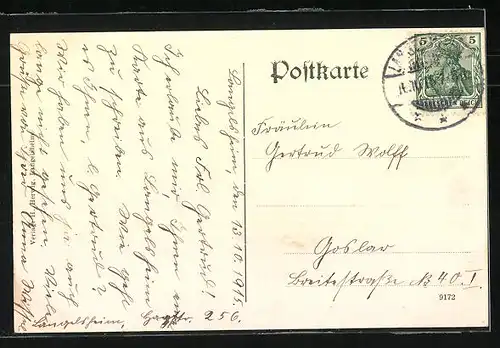 Postkarte
5 5
DEUTSCHES REICH
Langelsheim, den 13.10.1915.
Liebes Frl. Gertrud!
Ich erlaube mir, Ihnen eine
Karte aus Langelsheim
zu schreiben. Wie geht
es Ihnen, l. Gertrud?
Wir haben uns ja auch
lange nicht gesehen. Viele
Grüße von Ihrer Anna
Langelsheim, 256.
Fräulein
Gertrud Wolff
Goslar
Breitestraße № 40. I
9172